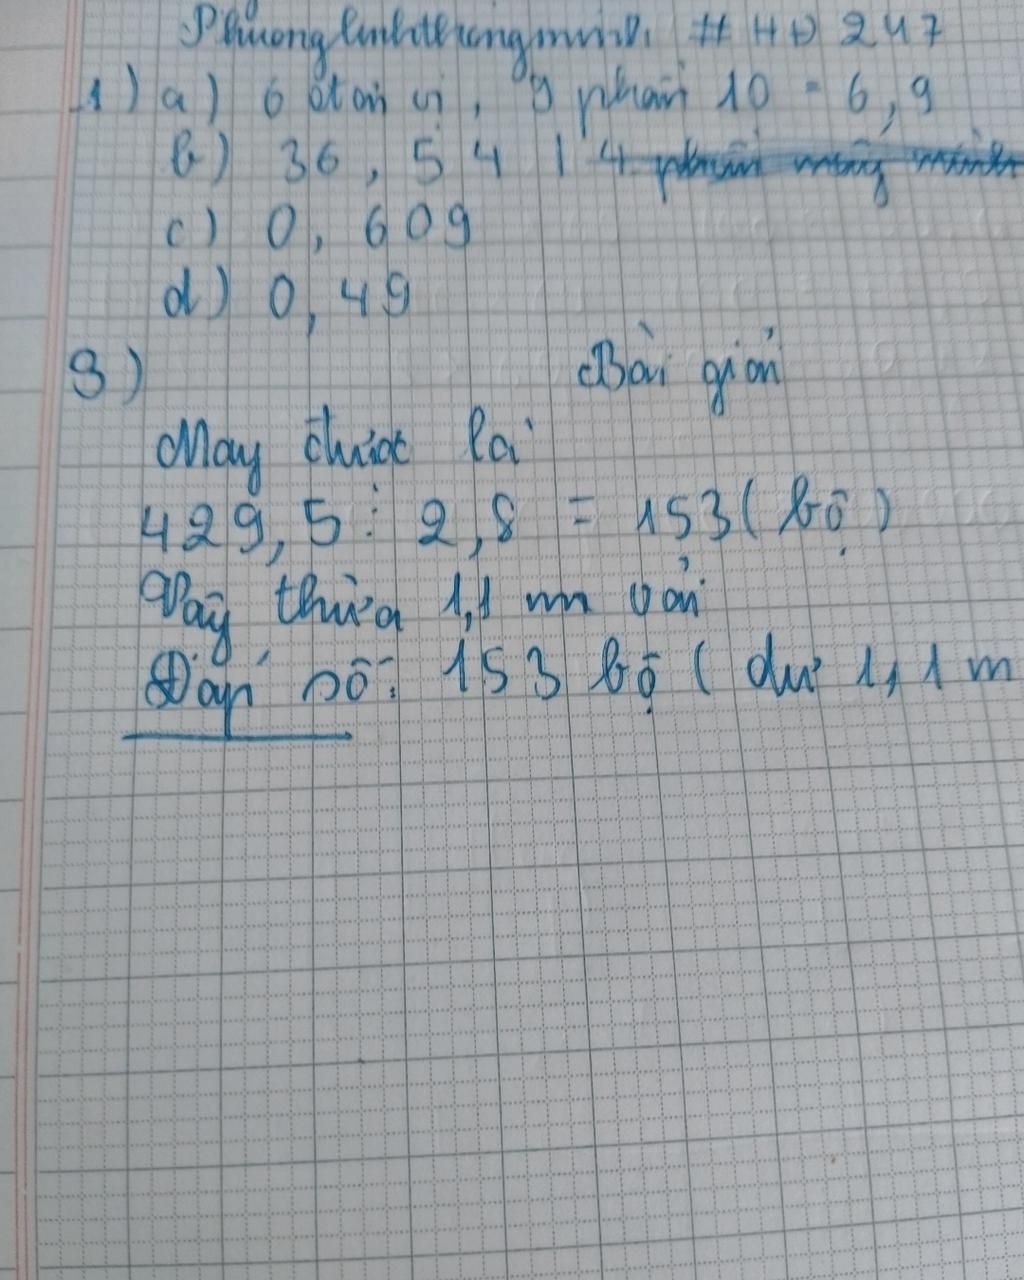 Phuonglinhthongminh. # HĐ 247
1) a) 6 đơn vị, 9 phần 10 = 6,9
b) 36, 5 4 1 4
c) 0, 609
d) 0, 49
3) Bài giải
May được lai
429,5 : 2,8 = 153 (bộ)
Vậy thừa 1,1 m vải
Đáp số: 153 bộ ( dư 1,1 m